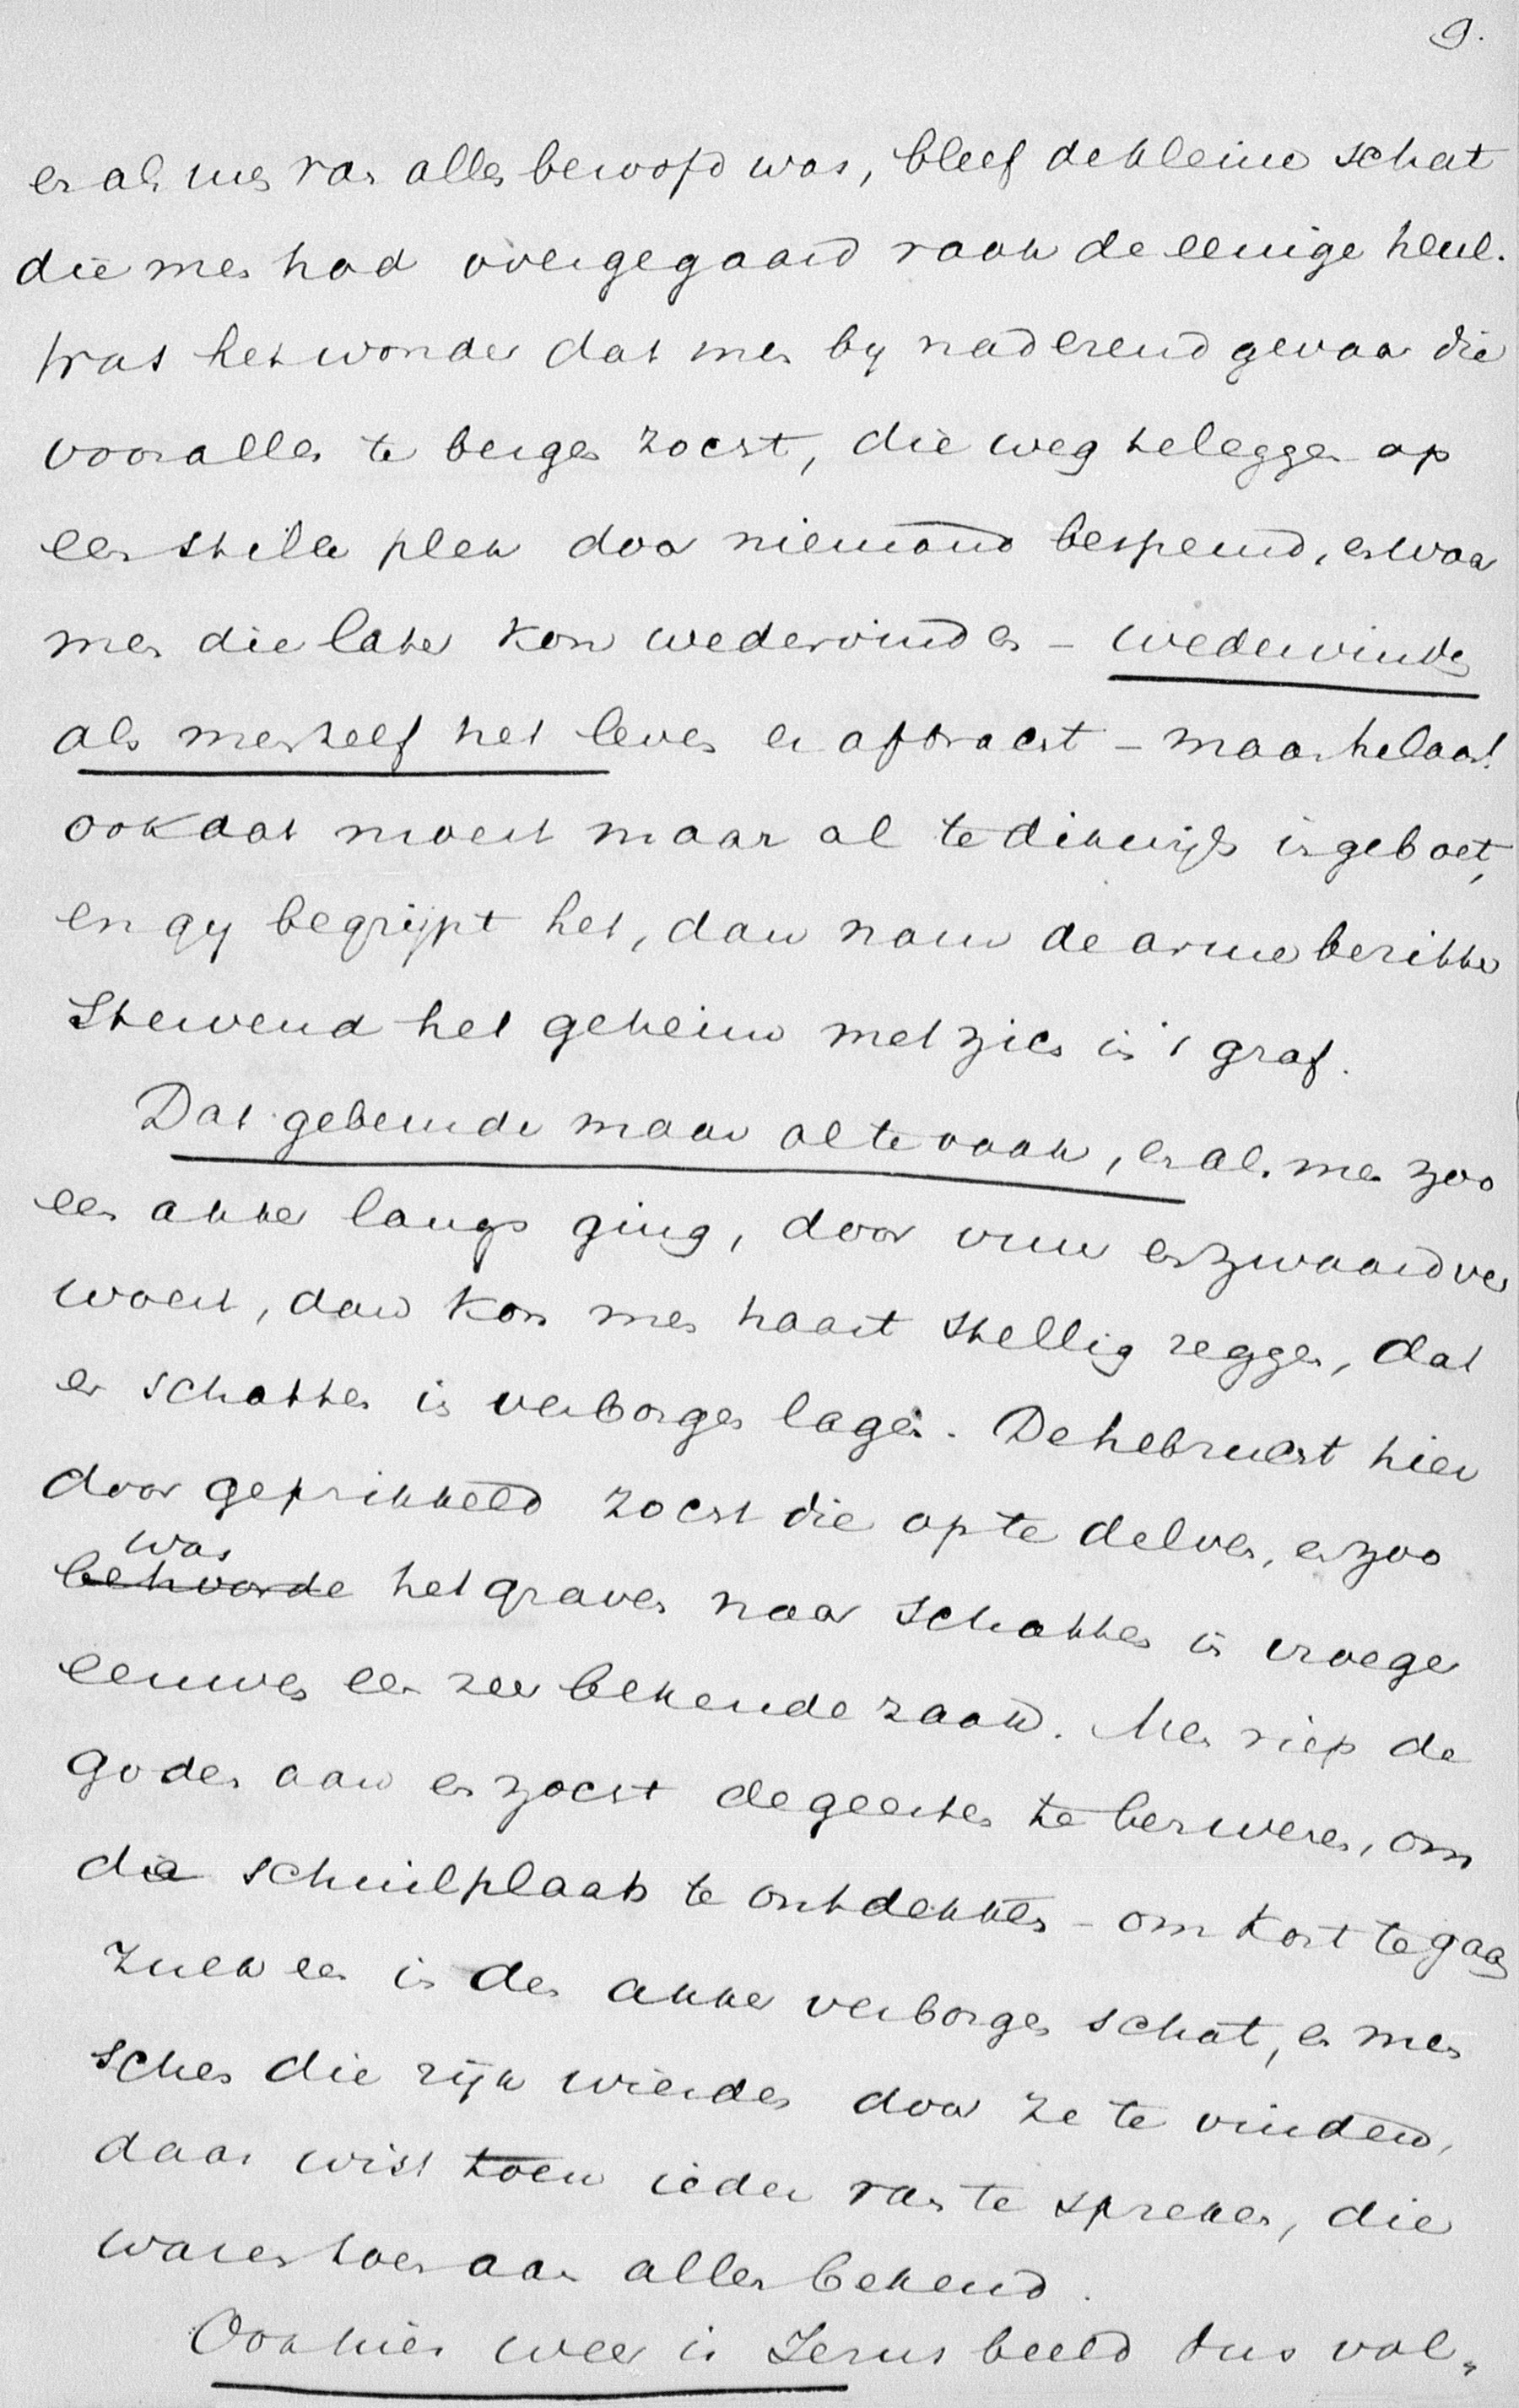 9.
en als men van alles beroofd was, bleef de kleine schat
die men had overgegaard vaak de eenige heul.
Wat het wonder dat men by naderend gevaar die
voor alles te bergen zocht, die weg te leggen op
een stille plek door niemand bespeurd, en waar
men die later kon wedervinden - wedervinden
als men zelf het leven er afbracht - maar helaas!
ook dat moest maar al te dikwijls ingeboet,
en gy begrijpt het, dan nam de arme bezitter
stervend het geheim met zich in 't graf.
Dat gebeurde maar al te vaak, en als men zoo
een akker langs ging, door vuur en zwaard ver
woest, dan kon men haast stellig zeggen, dat
er schatten in verborgen lagen. De hebzucht hier
door geprikkeld zocht die op te delven, en zoo
was
behoorde het graven naar schatten in vroeger
eeuwen een zeer bekende zaak. Men riep de
goden aan en zocht de geesten te bezweren, om
die schuilplaats te ontdekken - om kort te gaan
zulk een in den akker verborgen schat, en men
schen die rijk wierden door ze te vinden,
daar wist toen ieder van te spreken, die
waren toen aan allen bekend.
Ook hier weer is Jezus beeld dus vol-